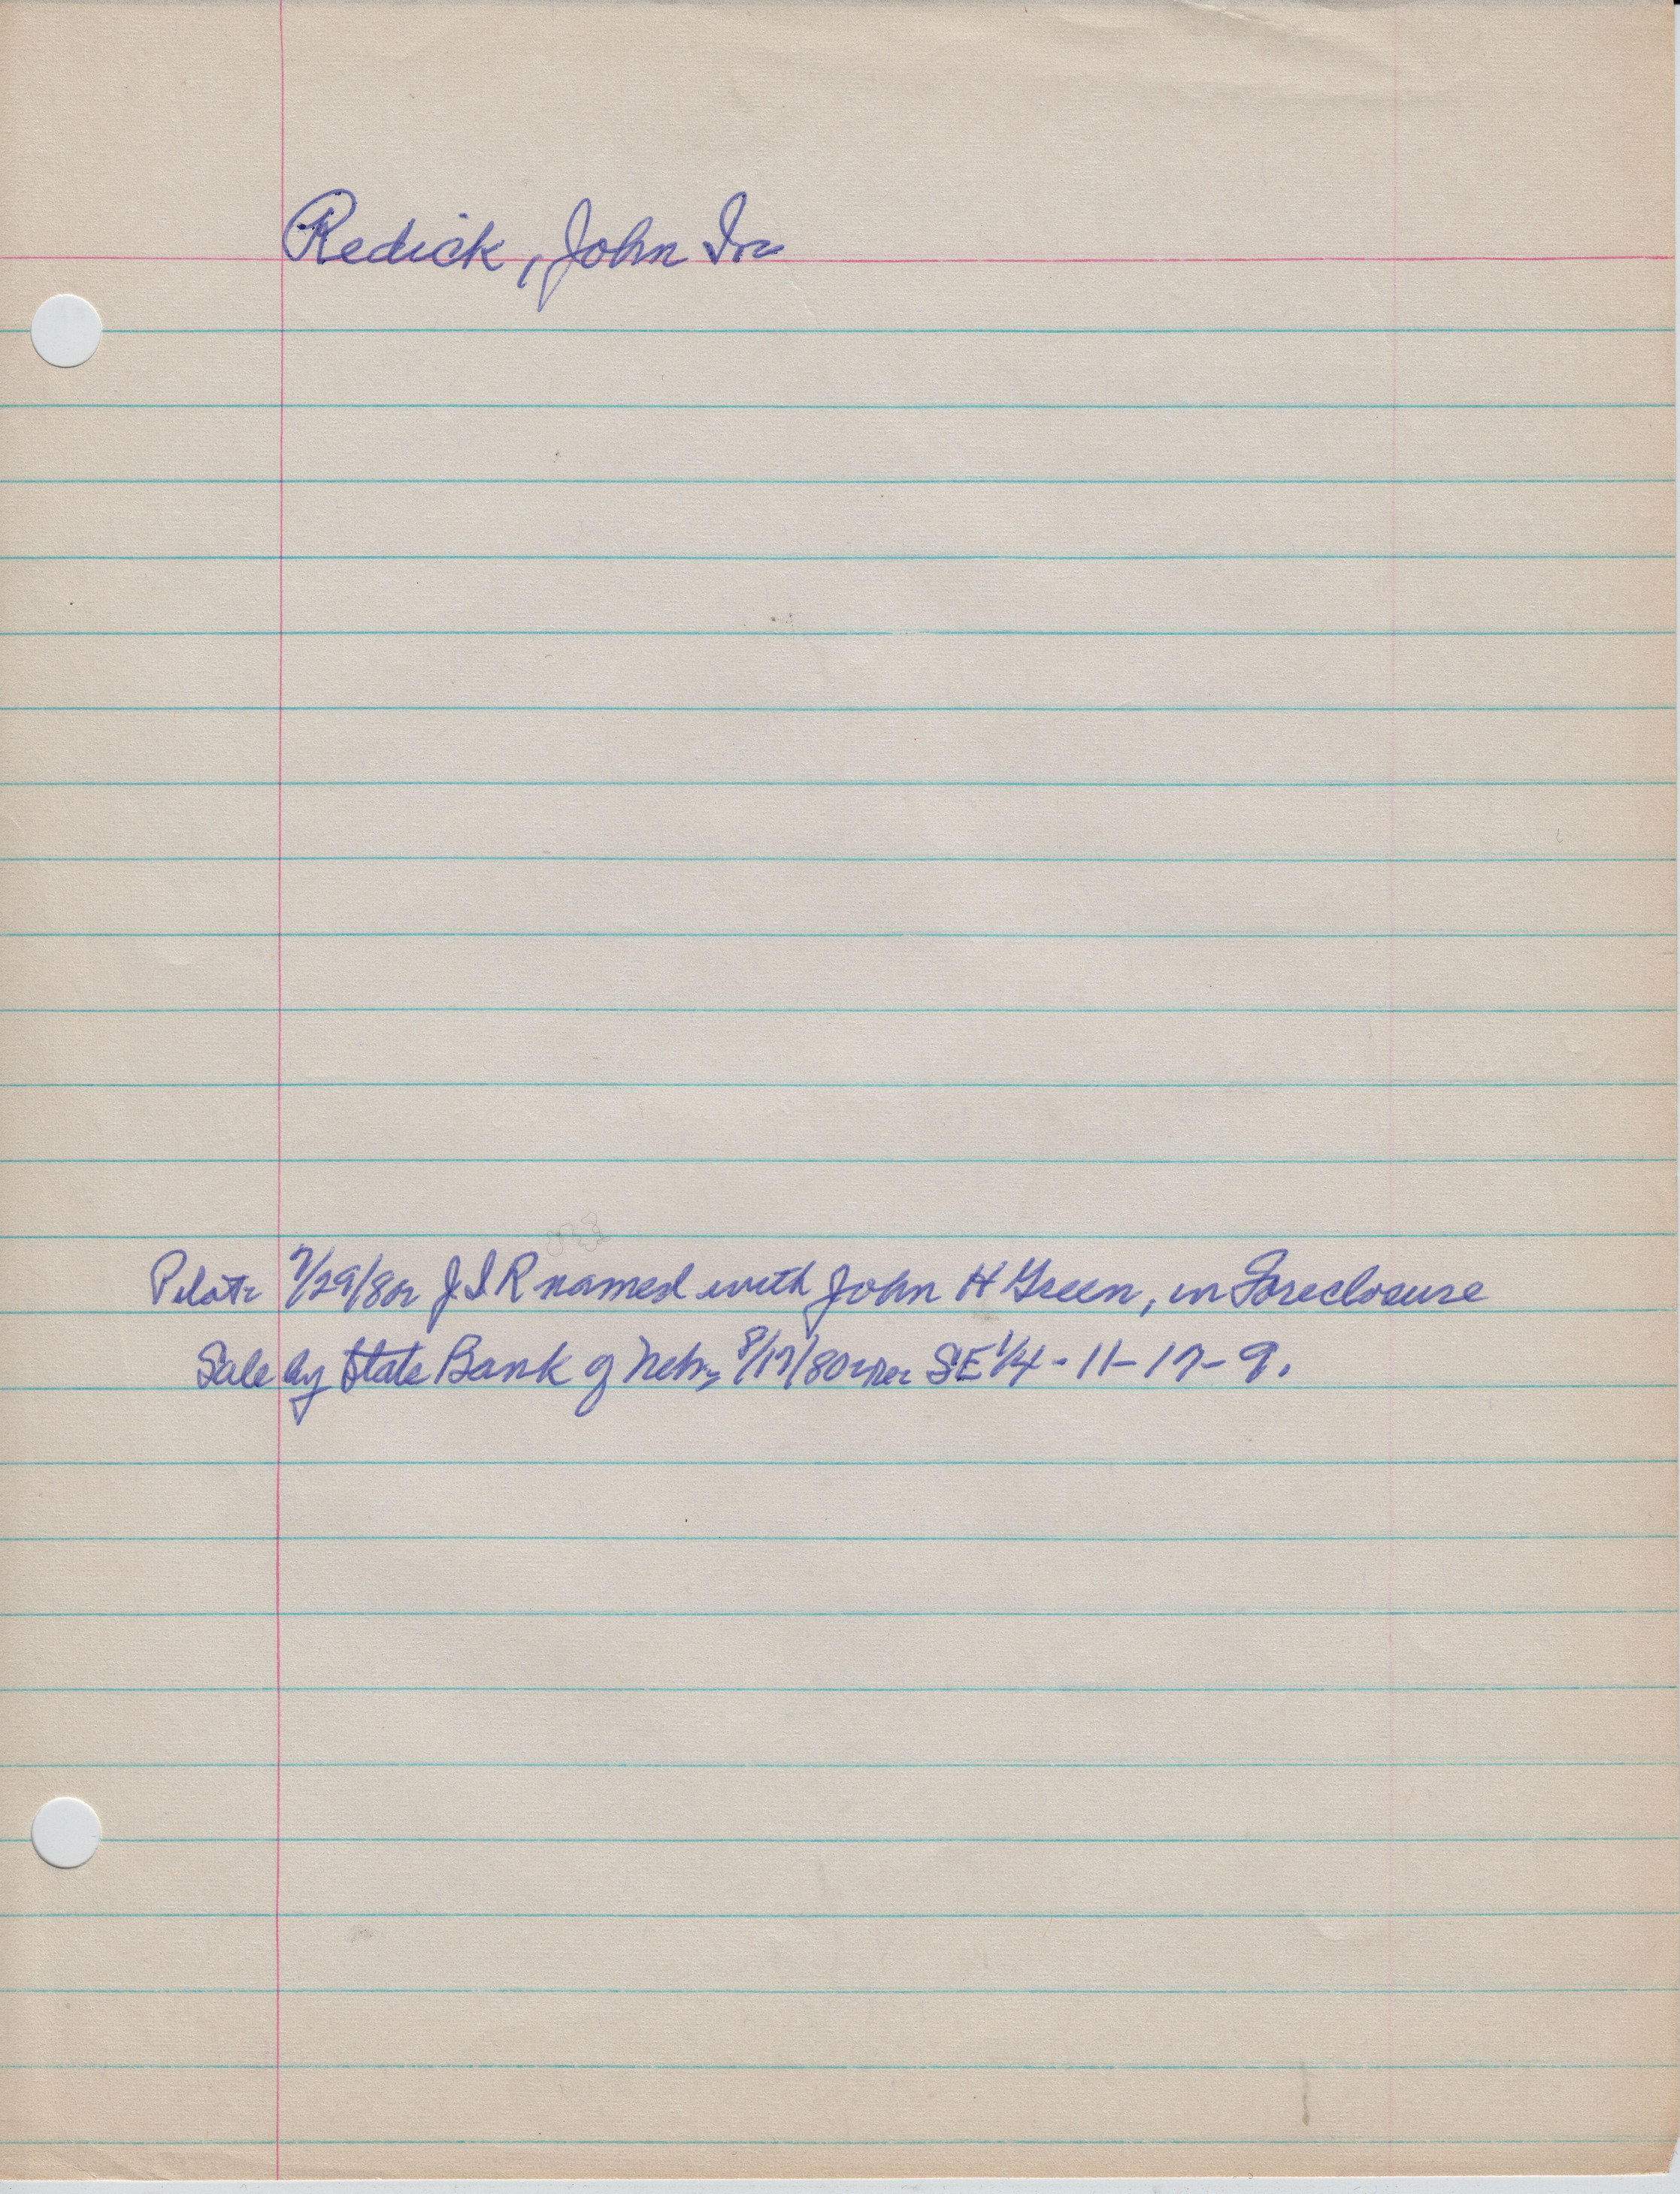 Redick, John I
Pilot 7/29/80 J I R named with John H Green, in Foreclosure
Sale by State Bank of Nebr, 8/17/80 SE 1/4 - 11 - 17 - 9.